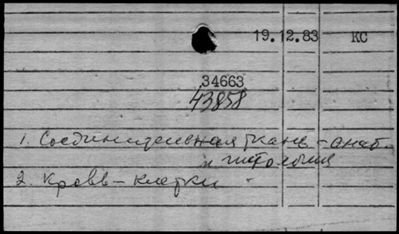 19.12.83 КС
34663
43858
1. Соединительная ткань - анат.
и гистология
2. Кровь - клетки